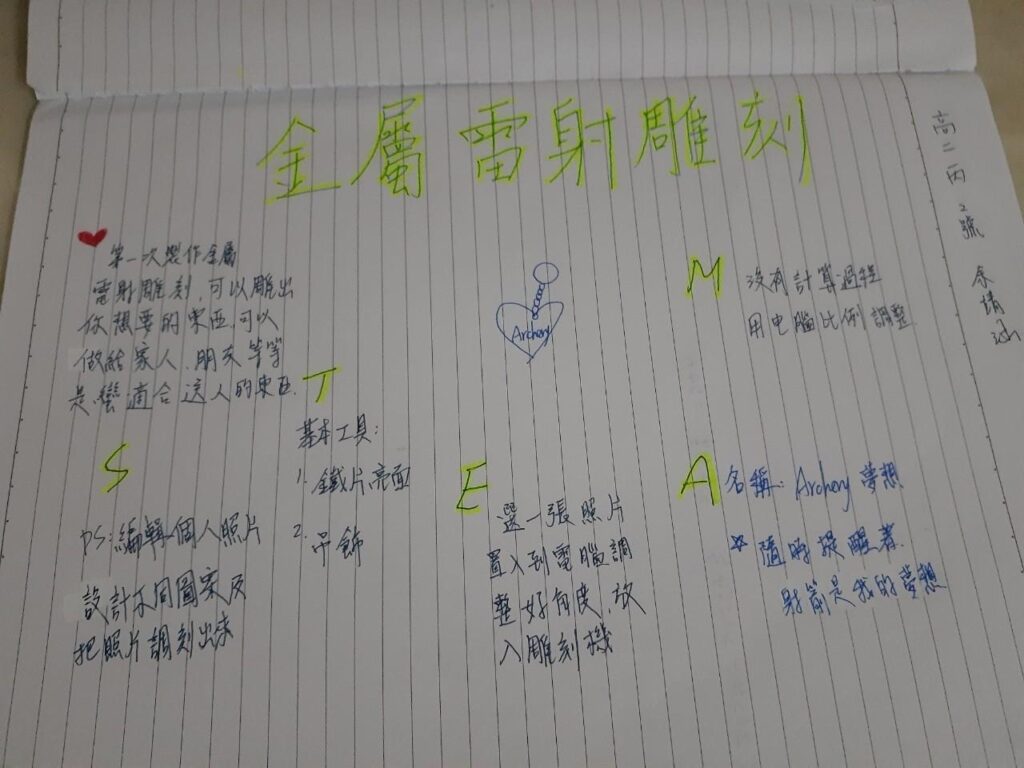 金屬雷射雕刻
高二丙 2號 余
第一次製作金屬
雷射雕刻,可以雕出
你想要的東西,可以
做給家人、朋友等等
是蠻適合送人的東西.
Archery
M
沒有計算過程
用電腦比例調整
T
基本工具:
1. 鐵片亮面
2. 吊飾
S
PS:編輯個人照片
設計不同圖案及
把照片調刻出來
E
選一張照片
置入到電腦調
整好角度,放
入雕刻機
A
名稱: Archery 夢想
☆ 隨時提醒著
射箭是我的夢想